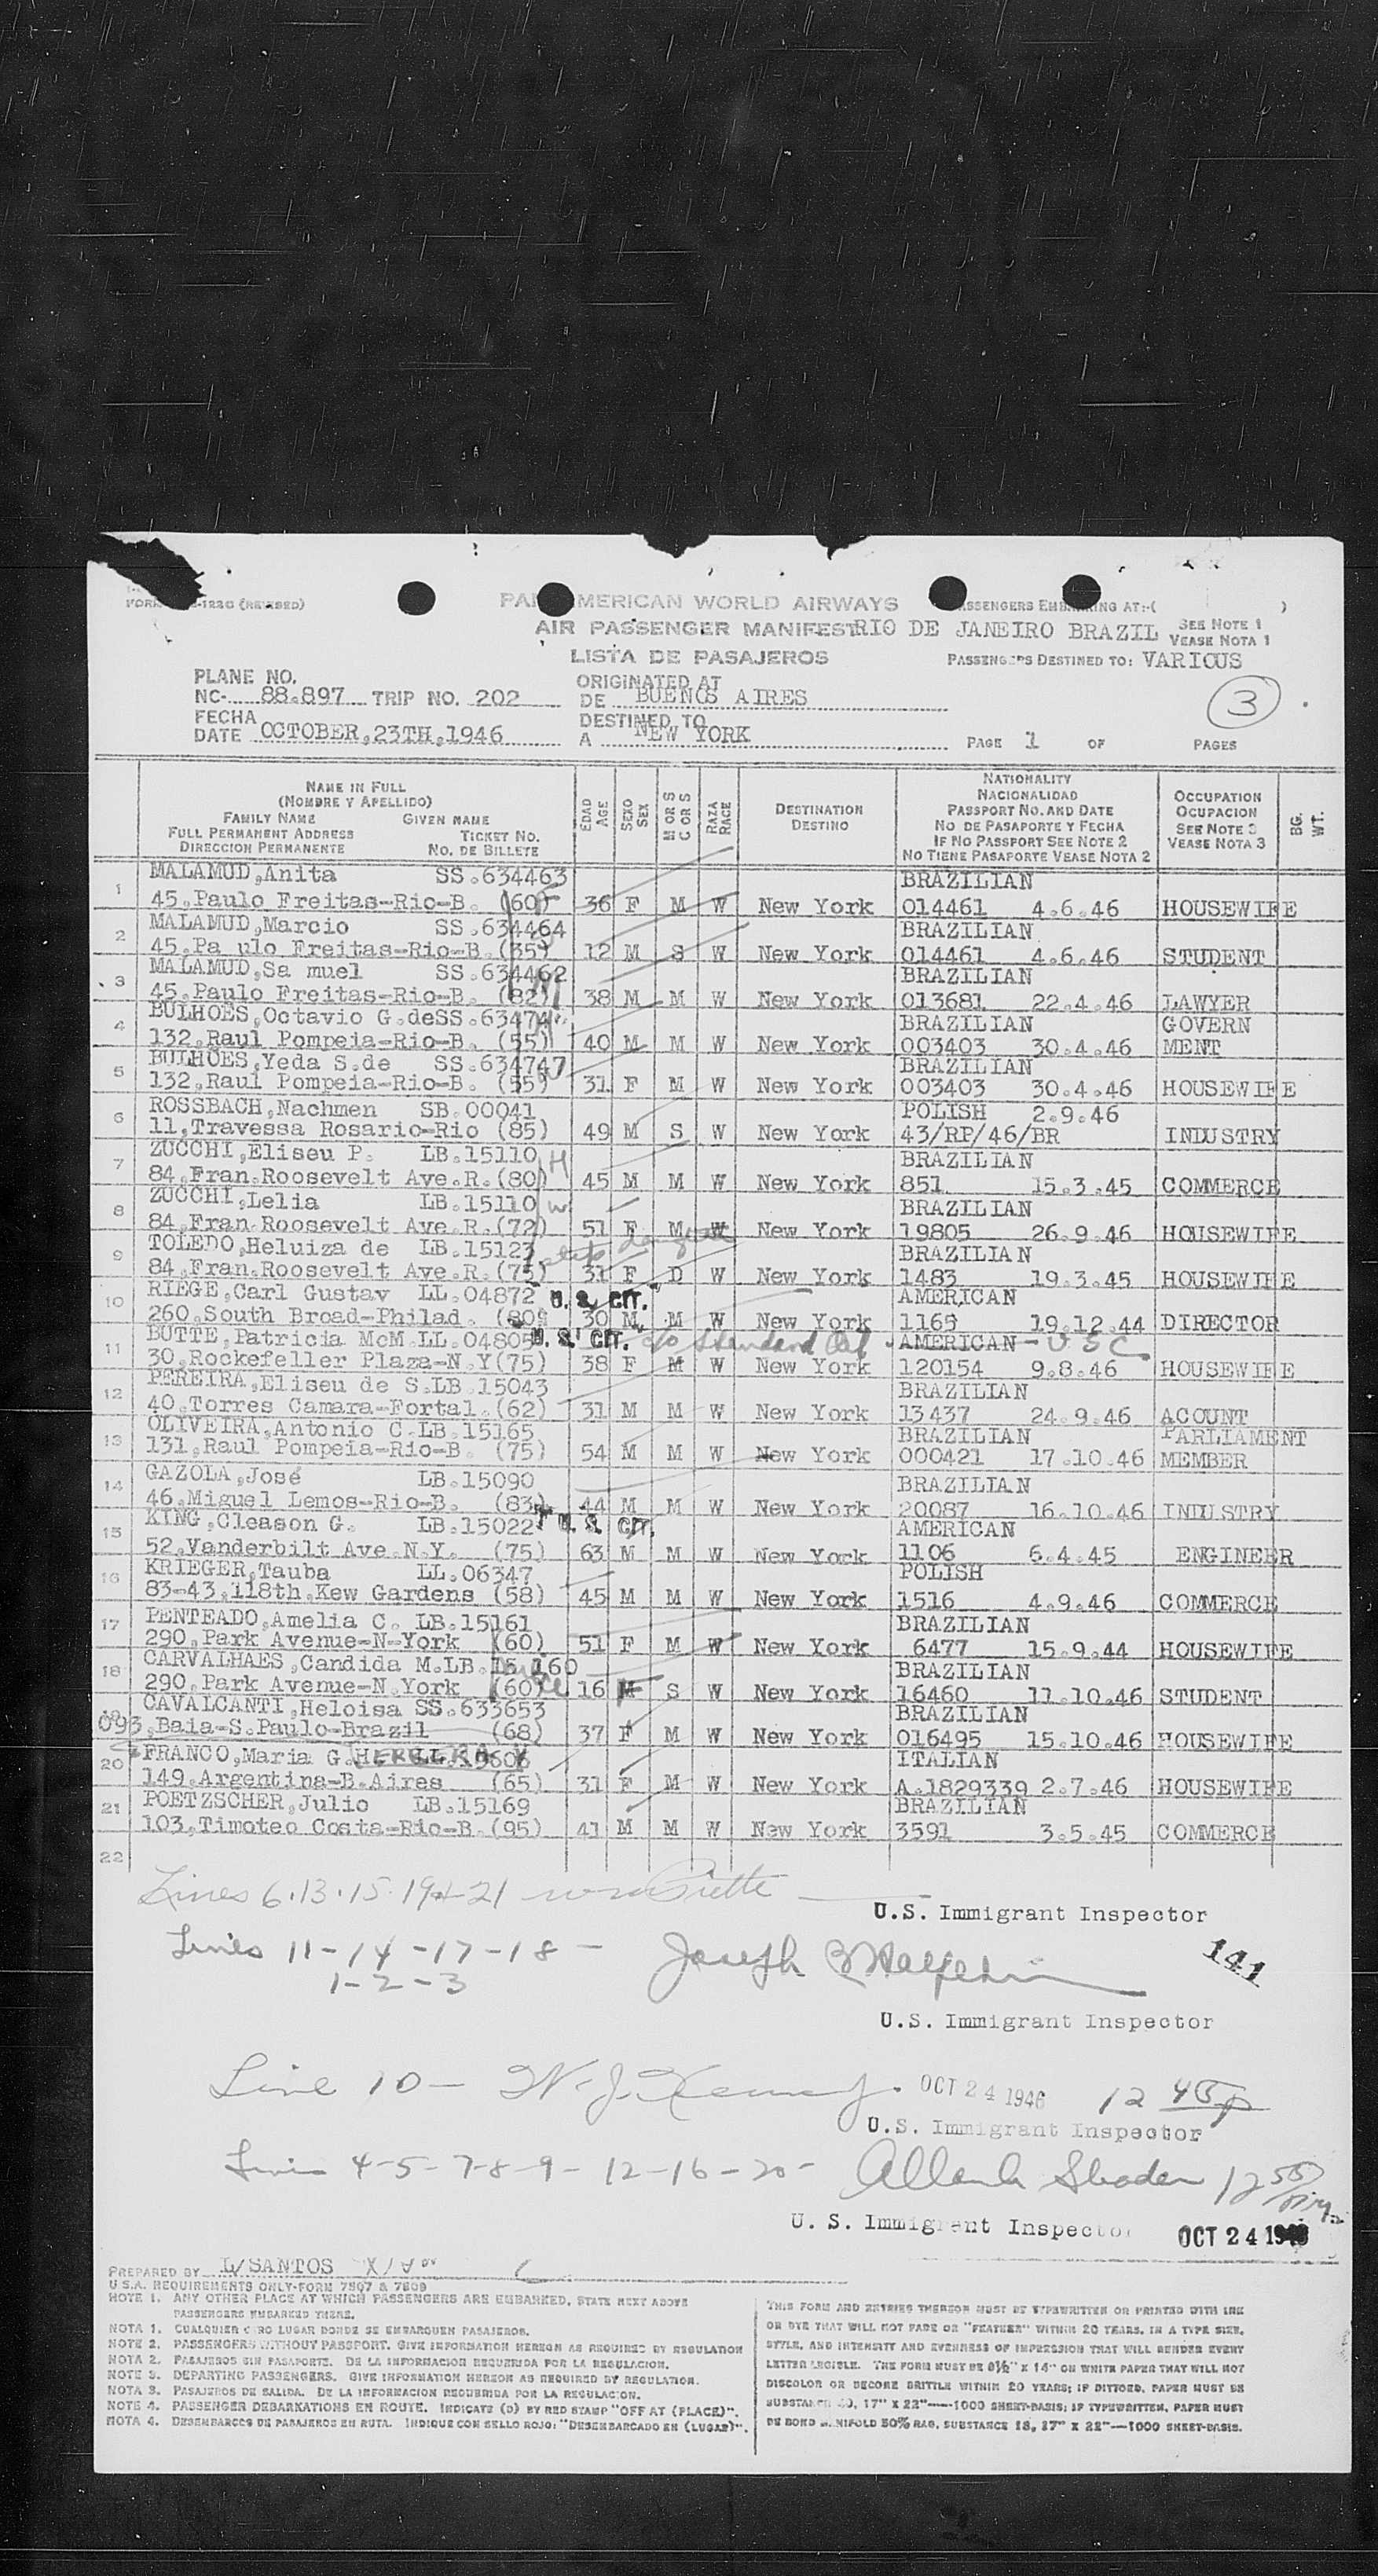 PAN AMERICAN WORLD AIRWAYS
PASSENGERS EMBARKING AT:-( )
AIR PASSENGER MANIFEST RIO DE JANEIRO BRAZIL SEE NOTE 1
VEASE NOTA 1
LISTA DE PASAJEROS PASSENGERS DESTINED TO: VARIOUS
PLANE NO. ORIGINATED AT
NC- 88.897 TRIP NO. 202 DE BUENOS AIRES
3
FECHA DESTINED TO
DATE OCTOBER,23TH,1946 A NEW YORK PAGE 1 OF PAGES
NAME IN FULL
(NOMBRE Y APELLIDO)
FAMILY NAME GIVEN NAME
FULL PERMANENT ADDRESS TICKET NO.
DIRECCION PERMANENTE NO. DE BILLETE
EDAD AGE SEXO SEX M OR S C OR S RAZA RACE
DESTINATION
DESTINO
NATIONALITY
NACIONALIDAD
PASSPORT NO. AND DATE
NO DE PASAPORTE Y FECHA
IF NO PASSPORT SEE NOTE 2
NO TIENE PASAPORTE VEASE NOTA 2
OCCUPATION
OCUPACION
SEE NOTE 3
VEASE NOTA 3
BG. WT.
1 MALAMUD,Anita SS.634463 BRAZILIAN
45,Paulo Freitas-Rio-B. (60) 36 F M W New York 014461 4.6.46 HOUSEWIFE
2 MALAMUD,Marcio SS.634464 BRAZILIAN
45.Pa ulo Freitas-Rio-B.(35) 12 M S W New York 014461 4.6.46 STUDENT
3 MALAMUD,Sa muel SS.634462 BRAZILIAN
45,Paulo Freitas-Rio-B. (82) 38 M M W New York 013681 22.4.46 LAWYER
4 BULHÕES,Octavio G.de SS.63474 BRAZILIAN GOVERN
132,Raul Pompeia-Rio-B. (55) 40 M M W New York 003403 30.4.46 MENT
5 BULHÕES,Yeda S.de SS.634747 BRAZILIAN
132,Raul Pompeia-Rio-B. (55) 31 F M W New York 003403 30.4.46 HOUSEWIFE
6 ROSSBACH,Nachmen SB.00041 POLISH 2.9.46
11,Travessa Rosario-Rio (85) 49 M S W New York 43/RP/46/BR INDUSTRY
7 ZUCCHI,Eliseu P. LB.15110 H BRAZILIAN
84,Fran.Roosevelt Ave.R.(80) 45 M M W New York 851 15.3.45 COMMERCE
8 ZUCCHI,Lelia LB.15110 w BRAZILIAN
84,Fran.Roosevelt Ave.R.(72) 51 F M W New York 19805 26.9.46 HOUSEWIFE
9 TOLEDO,Heluiza de LB.15123 BRAZILIAN
84,Fran.Roosevelt Ave.R.(75) 31 F D W New York 1483 19.3.45 HOUSEWIFE
10 RIEGE,Carl Gustav LL.04872 U. S. CIT. AMERICAN
260,South Broad-Philad. (80) 30 M M W New York 1165 19.12.44 DIRECTOR
11 BUTTE,Patricia McM.LL.04805 U. S. CIT. c/o Standard Oil AMERICAN - USC
30,Rockefeller Plaza-N.Y(75) 38 F M W New York 120154 9.8.46 HOUSEWIFE
12 PEREIRA,Eliseu de S.LB.15043 BRAZILIAN
40,Torres Camara-Fortal.(62) 31 M M W New York 13437 24.9.46 ACOUNT
13 OLIVEIRA,Antonio C.LB.15165 BRAZILIAN PARLIAMENT
131,Raul Pompeia-Rio-B. (75) 54 M M W New York 000421 17.10.46 MEMBER
14 GAZOLA,José LB.15090 BRAZILIAN
46,Miguel Lemos-Rio-B. (83) 44 M M W New York 20087 16.10.46 INDUSTRY
15 KING,Cleason G. LB.15022 U. S. CIT. AMERICAN
52,Vanderbilt Ave N.Y. (75) 63 M M W New York 1106 6.4.45 ENGINEER
16 KRIEGER,Tauba LL.06347 POLISH
83-43,118th,Kew Gardens (58) 45 M M W New York 1516 4.9.46 COMMERCE
17 PENTEADO,Amelia C. LB.15161 BRAZILIAN
290,Park Avenue-N-York (60) 51 F M W New York 6477 15.9.44 HOUSEWIFE
18 CARVALHAES,Candida M.LB.15.160 BRAZILIAN
290,Park Avenue-N.York (60) 16 F S W New York 16460 11.10.46 STUDENT
19 CAVALCANTI,Heloisa SS.633653 BRAZILIAN
093,Baia-S.Paulo-Brazil (68) 37 F M W New York 016495 15.10.46 HOUSEWIFE
20 FRANCO,Maria G. ITALIAN
149,Argentina-B.Aires (65) 31 F M W New York A.1829339 2.7.46 HOUSEWIFE
21 POETZSCHER,Julio LB.15169 BRAZILIAN
103,Timoteo Costa-Rio-B.(95) 41 M M W New York 3591 3.5.45 COMMERCE
22
Lines 6.13.15.19+21
U.S. Immigrant Inspector
Lines 11-14-17-18- Joseph 141
1-2-3
U.S. Immigrant Inspector
Line 10- OCT 24 1946 12 45p
U.S. Immigrant Inspector
Lines 4-5-7-8-9-12-16-20- 12 55
U. S. Immigrant Inspector OCT 24 1946
PREPARED BY L/SANTOS
U.S.A. REQUIREMENTS ONLY-FORM 7507 & 7509
NOTE 1. ANY OTHER PLACE AT WHICH PASSENGERS ARE EMBARKED, STATE NEXT ABOVE
PASSENGERS EMBARKED THERE.
NOTA 1. CUALQUIER OTRO LUGAR DONDE SE EMBARQUEN PASAJEROS.
NOTE 2. PASSENGERS WITHOUT PASSPORT. GIVE INFORMATION HEREON AS REQUIRED BY REGULATION
NOTA 2. PASAJEROS SIN PASAPORTE. DE LA INFORMACION REQUERIDA POR LA REGULACION.
NOTE 3. DEPARTING PASSENGERS. GIVE INFORMATION HEREON AS REQUIRED BY REGULATION.
NOTA 3. PASAJEROS DE SALIDA. DE LA INFORMACION REQUERIDA POR LA REGULACION.
NOTE 4. PASSENGER DEBARKATIONS EN ROUTE. INDICATE (D) BY RED STAMP "OFF AT (PLACE)".
NOTA 4. DESEMBARCOS DE PASAJEROS EN RUTA. INDIQUE CON SELLO ROJO: "DESEMBARCADO EN (LUGAR)".
THIS FORM AND ENTRIES THEREON MUST BE TYPEWRITTEN OR PRINTED WITH INK
OR DYE THAT WILL NOT FADE OR "FEATHER" WITHIN 20 YEARS, IN A TYPE SIZE,
STYLE, AND INTENSITY AND EVENNESS OF IMPRESSION THAT WILL RENDER EVERY
LETTER LEGIBLE. THE FORM MUST BE 8½" X 14" ON WHITE PAPER THAT WILL NOT
DISCOLOR OR BECOME BRITTLE WITHIN 20 YEARS; IF DITTOED, PAPER MUST BE
SUBSTANCE 40, 17" X 22"—1000 SHEET-BASIS; IF TYPEWRITTEN, PAPER MUST
BE BOND MANIFOLD 50% RAG, SUBSTANCE 18, 17" X 22"—1000 SHEET-BASIS.